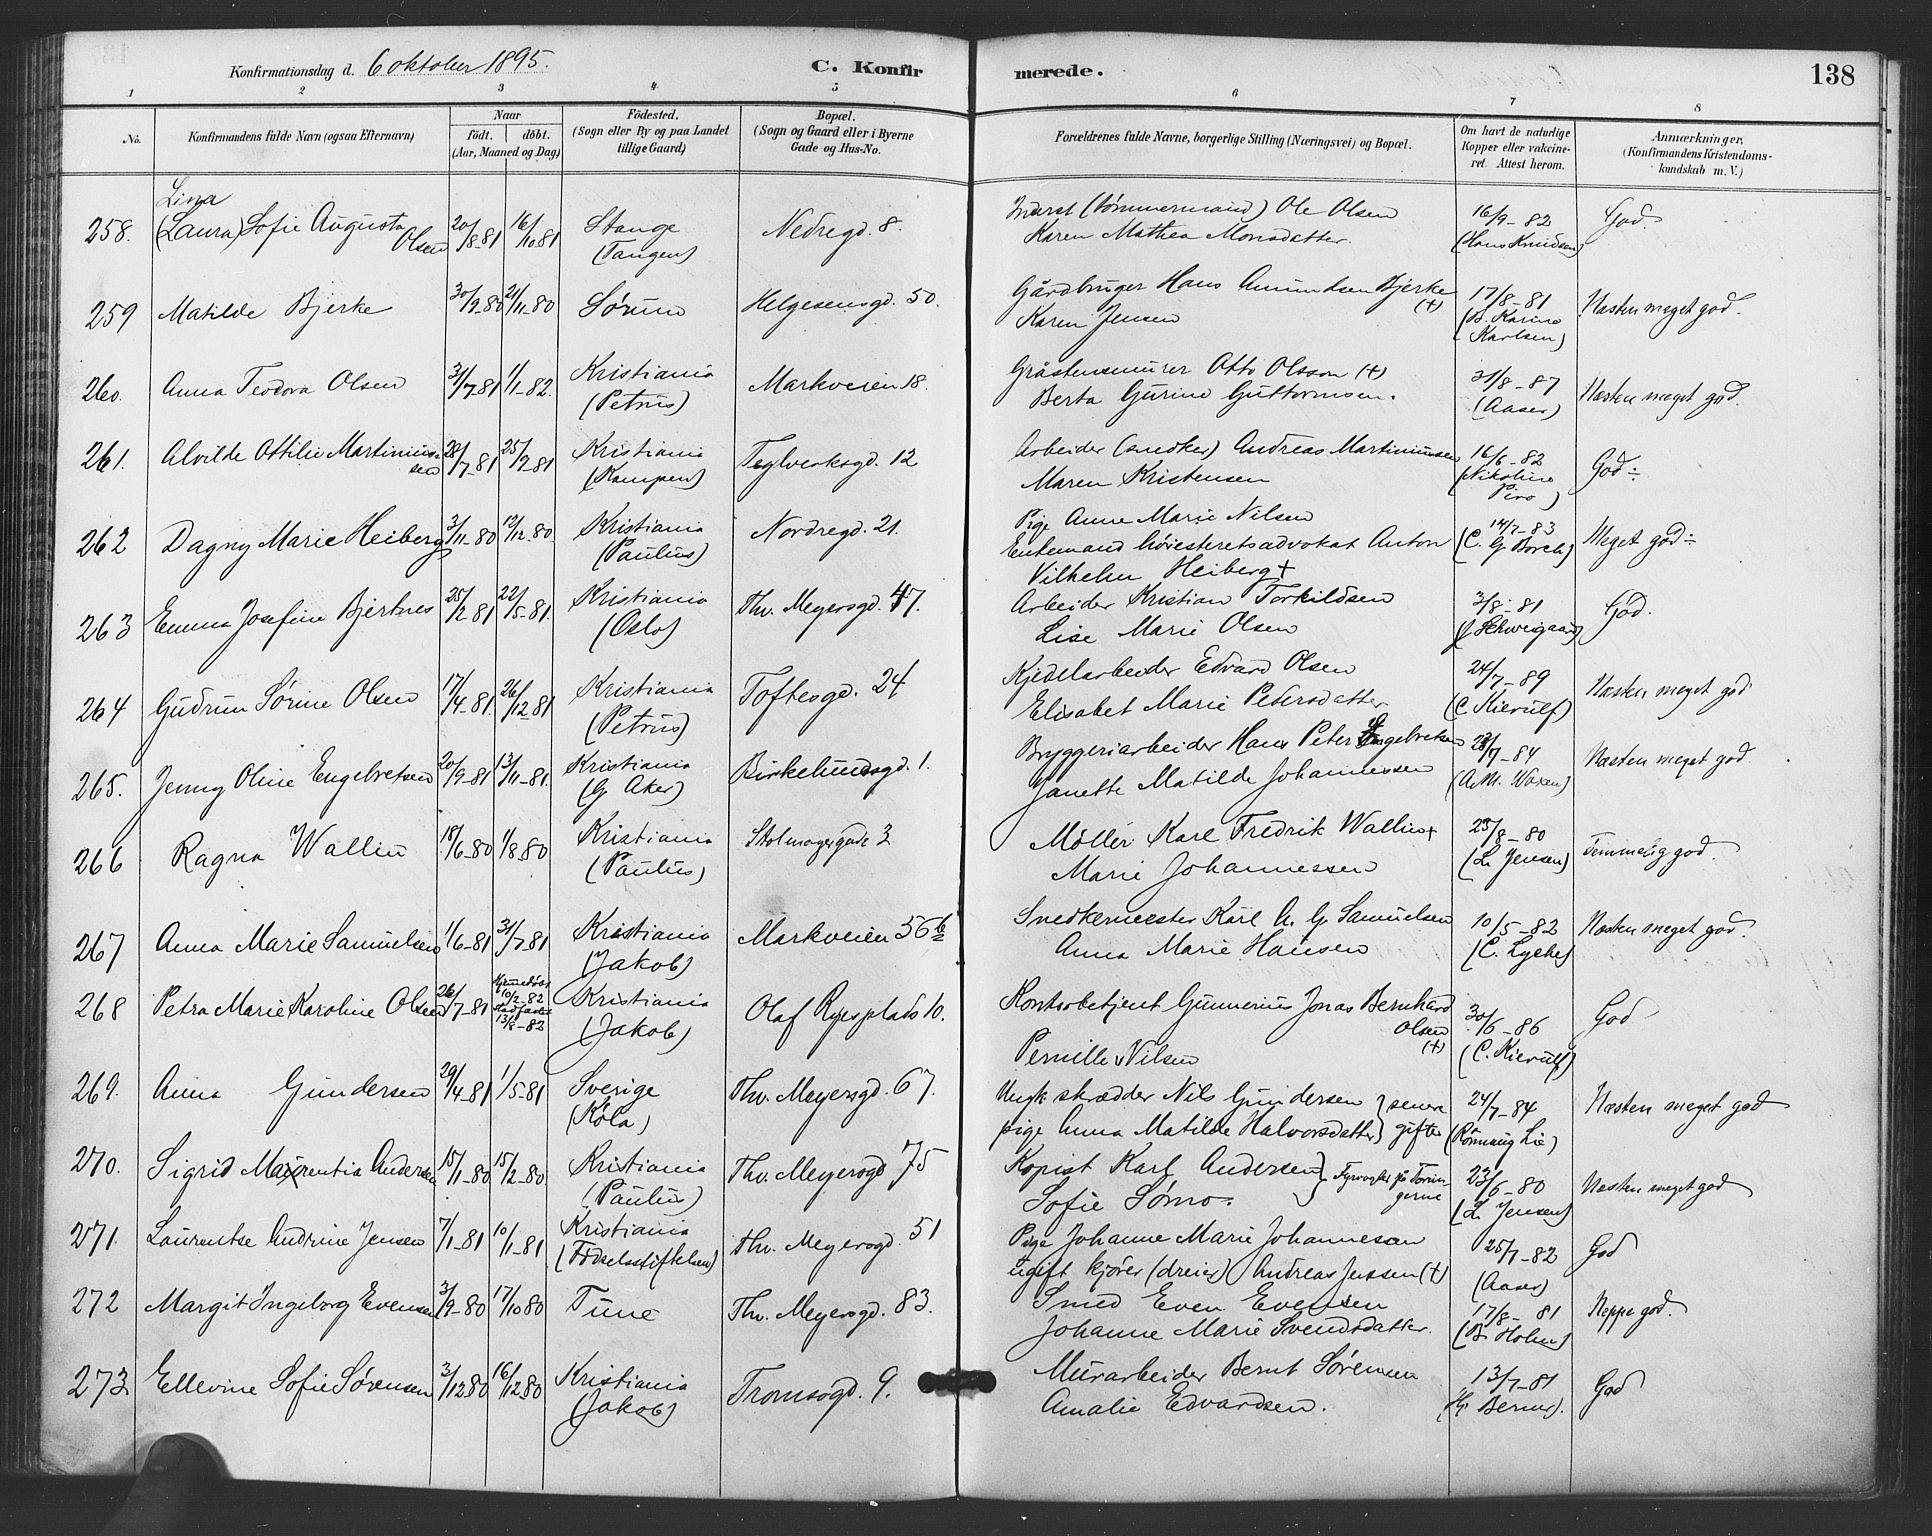 Konfirmationsdag d. 6 oktober 1895. C. Konfirmerede. 138
1 2 3 4 5 6 7 8
No. Konfirmandens fulde Navn (ogsaa Efternavn) Naar født. døbt. (Aar, Maaned og Dag) Fødested. (Sogn eller By og paa Landet tillige Gaard) Bopæl. (Sogn og Gaard eller i Byerne Gade og Hus-No. Forældrenes fulde Navne, borgerlige Stilling (Næringsvei) og Bopæl. Om havt de naturlige Kopper eller vakcineret. Attest herom. Anmærkninger. (Konfirmandens Kristendomskundskab m. V.)
Lina
258. (Laura) Sofie Augusta Olsen 20/8-81 16/10 81 Stange (Tangen) Nedregd. 8. Inderst (tømmermand) Ole Olsen
Karen Mathea Monsdatter. 16/9-82 (Hans Knudsen) God.
259 Matilde Bjerke 30/9-80 21/11-80 Sørum Helgesensgd. 50. Gårdbruger Hans Amundsen Bjerke (+)
Karen Jensen 17/8-81 (B. Karine Karlsen) Næsten meget god.
260. Anna Teodora Olsen 31/7-81 1/1-82. Kristiania (Petrus) Markveien 18. Gråstensmurer Otto Olsson (+)
Berta Gurine Guttormsen. 31/8-87 (Aaser) Næsten meget god.
261. Alvilde Ottilie Martiniussen 28/7-81 25/9-81 Kristiania (Kampen) Teglverksgd. 12 Arbeider (snedker) Andreas Martiniussen
Maren Kristensen 16/6-82 (Nikoline Piro) God ÷
262 Dagny Marie Heiberg 3/11-80 12/12-80 Kristiania (Paulus) Nordregd. 21. Pige Anne Marie Nilsen
Enkemand høiesteretsadvokat Anton
Vilhelm Heiberg + 14/7-83 (C. G. Borch) Meget god ÷
263 Emma Josefine Bjertnes 25/2-81 22/5-81. Kristiania (Oslo) Thv. Meyersgd. 47. Arbeider Kristian Torkildsen
Lise Marie Olsen 3/8-81 (J Schweigaard) God.
264 Gudrun Sørine Olsen 17/4-81. 26/12 81 Kristiania (Petrus) Toftesgd. 24 Kjedelarbeider Edvard Olsen
Elisabet Marie Petersdatter 24/7-89 (C. Kierulf) Næsten meget god
265. Jenny Oline Engebretsen 20/9-81 13/11-81. Kristiania (G Aker) Birkelundsgd. 1. Bryggeriarbeider Hans Peter Engebretsen
Janette Matilde Johannessen 28/7-84 (A.M. Waxen) Næsten meget god.
266 Ragna Wallin 18/6-80 1/8-80 Kristiania (Paulus) Stolmagergade 3 Møller Karl Fredrik Wallin +
Marie Johannessen 25/8-80 (L. Jensen) Temmelig god.
267 Anna Marie Samuelsen 1/6-81 31/7-81 Kristiania (Jakob) Markveien 56 b Snedkermester Karl A. G. Samuelsen
Anna Marie Hansen 10/5-82 (C. Lyche) Næsten meget god.
268 Petra Marie Karoline Olsen 26/7-81 Hjemmedøbt 10/2-82 Stadfæstet 13/8-82 Kristiania (Jakob) Olaf Ryesplads 10. Kontorbetjent Gunnerius Jonas Bernhard Olsen (+)
Pernille Nilsen 30/6-86 (C. Kierulf) God
269. Anna Gundersen 29/4-81 1/5-81 Sverige (Köla) Thv. Meyersgd. 67. Ungk skrædder Nils Gundersen
pige Anna Matilde Halvorsdatter } senere gifte 24/7-84 (Rønnaug Lie) Næsten meget god
270. Sigrid Maurentia Andersen 15/1-80 15/2-80. Kristiania (Paulus) Thv. Meyersgd 75 Kopist Karl Andersen
Sofie Sømo. } Fyrvogter på Torungerne 23/6-80 (L. Jensen) Næsten meget god
271. Laurentse Andrine Jensen 7/1-81 10/1-81 Kristiania (Fødselsstiftelsen) Thv. Meyersgd. 51 Pige Johanne Marie Johannesen
ugift kjører (dreier) Andreas Jenssen (+) 25/7-82 (Aaser) God
272 Margit Ingeborg Evensen 3/9-80 17/10 80 Tune Thv. Meyersgd. 83. Smed Even Evensen
Johanne Marie Svendsdatter. 17/8-81 (B. Holm) Neppe god.
273 Ellevine Sofie Sørensen 3/12 80 16/12 80 Kristiania (Jakob) Tromsøgd. 9. Murarbeider Bernt Sørensen
Amalie Edvardsen. 13/7-81 (H. Berner). God